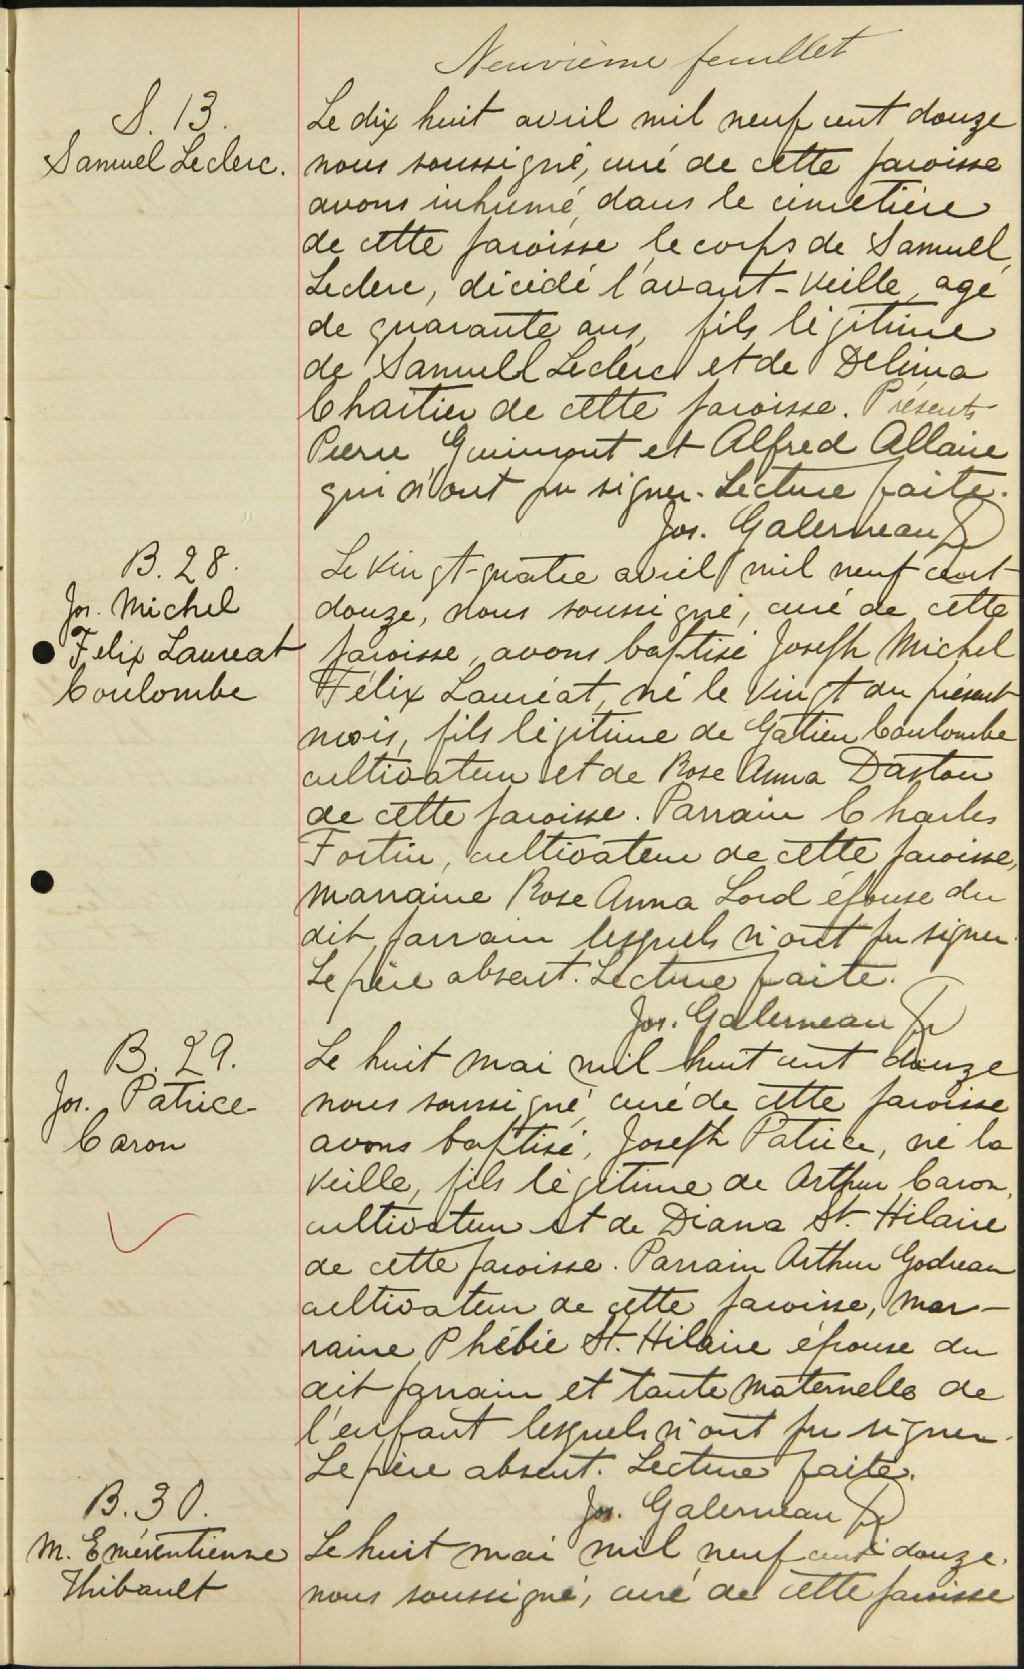 Neuvième feuillet
S. 13.
Samuel Leclerc.
Le dix huit avril mil neuf cent douze
nous soussigné, curé de cette paroisse
avons inhumé, dans le cimetière
de cette paroisse, le corps de Samuel
Leclerc, décédé l'avant-veille, agé
de quarante ans, fils légitime
de Samuel Leclerc et de Delima
Chartier de cette paroisse. Présents
Pierre Guimont et Alfred Allaire
qui n'ont pu signer. Lecture faite.
Jos. Galerneau Ptr
B. 28.
Jos. Michel
Felix Laureat
Coulombe
Le vingt-quatre avril mil neuf cent
douze, nous soussigné, curé de cette
paroisse, avons baptisé Joseph Michel
Félix Lauréat, né le vingt du présent
mois, fils légitime de Gatien Coulombe
cultivateur et de Rose Anna Dastou
de cette paroisse. Parrain Charles
Fortin, cultivateur de cette paroisse,
marraine Rose Anna Lord épouse du
dit parrain lesquels n'ont pu signer.
Le père absent. Lecture faite.
Jos. Galerneau Ptr
B. 29.
Jos. Patrice
Caron
Le huit mai mil huit cent douze
nous soussigné, curé de cette paroisse
avons baptisé, Joseph Patrice, né la
veille, fils légitime de Arthur Caron,
cultivateur et de Diana St. Hilaire
de cette paroisse. Parrain Arthur Godreau
cultivateur de cette paroisse, mar-
raine Phébie St. Hilaire épouse du
dit parrain et tante maternelle de
l'enfant lesquels n'ont pu signer.
Le père absent. Lecture faite.
Jos. Galerneau Ptr
B. 30.
M. Emérentienne
Thibault
Le huit mai mil neuf cent douze.
nous soussigné, curé de cette paroisse